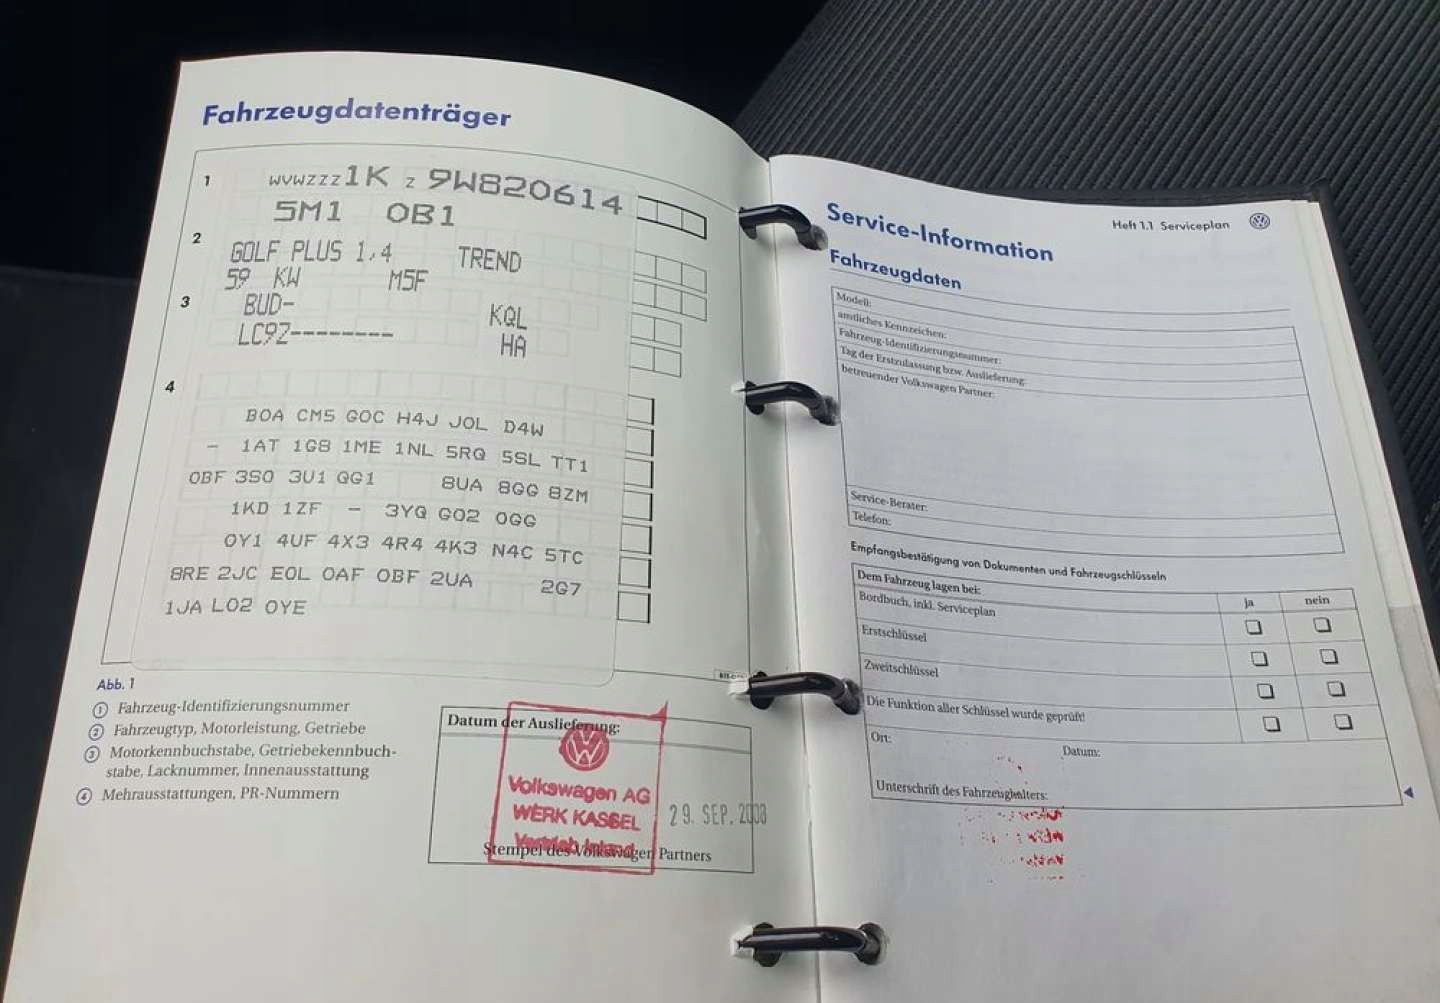 Fahrzeugdatenträger
1
WVWZZZ1K Z 9W820614
5M1 0B1
2
GOLF PLUS 1,4 TREND
59 KW M5F
3
BUD- KQL
LC9Z-------- HA
4
BOA CM5 GOC H4J JOL D4W
- 1AT 1G8 1ME 1NL 5RQ 5SL TT1
OBF 3S0 3U1 QG1 8UA 8GG 8ZM
1KD 1ZF - 3YQ G02 0GG
0Y1 4UF 4X3 4R4 4K3 N4C 5TC
8RE 2JC E0L 0AF 0BF 2UA 2G7
1JA L02 0YE
Abb. 1
1 Fahrzeug-Identifizierungsnummer
2 Fahrzeugtyp, Motorleistung, Getriebe
3 Motorkennbuchstabe, Getriebekennbuch-
stabe, Lacknummer, Innenausstattung
4 Mehrausstattungen, PR-Nummern
Datum der Auslieferung:
Volkswagen AG
WERK KASSEL
Vertrieb Inland
29. SEP. 2008
Stempel des Volkswagen Partners
Heft 1.1 Serviceplan
Service-Information
Fahrzeugdaten
Modell:
amtliches Kennzeichen:
Fahrzeug-Identifizierungsnummer:
Tag der Erstzulassung bzw. Auslieferung:
betreuender Volkswagen Partner:
Service-Berater:
Telefon:
Empfangsbestätigung von Dokumenten und Fahrzeugschlüsseln
Dem Fahrzeug lagen bei: ja nein
Bordbuch, inkl. Serviceplan
Erstschlüssel
Zweitschlüssel
Die Funktion aller Schlüssel wurde geprüft!
Ort: Datum:
Unterschrift des Fahrzeughalters: